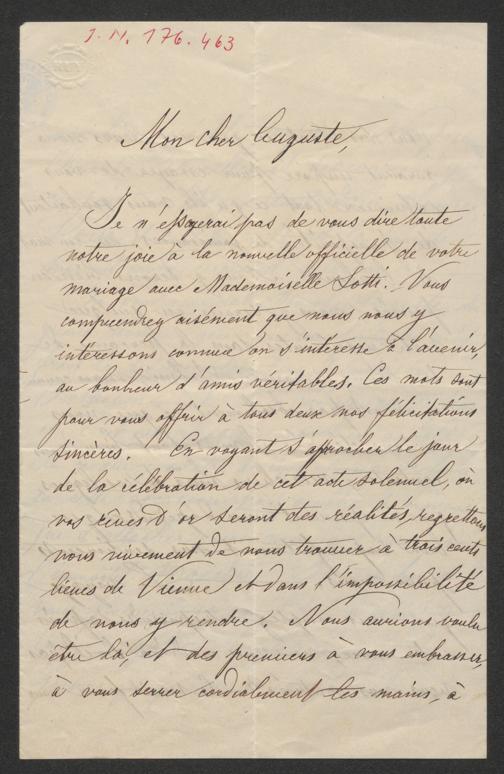 J. N. 176.463
Mon cher Auguste,
Je n'essayerai pas de vous dire toute
notre joie à la nouvelle officielle de votre
mariage avec Mademoiselle Lotti. Vous
comprendrez aisément que nous nous y
intéressons comme on s'intéresse à l'avenir,
au bonheur d'amis véritables. Ces mots sont
pour vous offrir à tous deux nos félicitations
sincères. En voyant s'aprocher le jour
de la célébration de cet acte solennel, où
vos rêves d'or seront des réalités, regrettons
nous vivement de nous trouver à trois cents
lieues de Vienne et dans l'impossibilité
de nous y rendre. Nous aurions voulu
être là, et des premiers à vous embrasser,
à vous serrer cordialement les mains, à